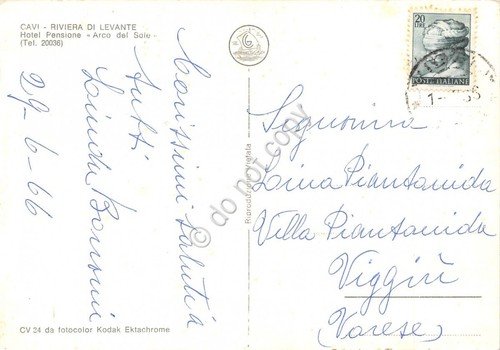 CAVI - RIVIERA DI LEVANTE
Hotel Pensione «Arco del Sole»
(Tel. 20036)
Carissimi saluti a
tutti
Linda
29-6-66
CV 24 da fotocolor Kodak Ektachrome
Riproduzione Vietata
do not copy
20
LIRE
POSTE ITALIANE
Signorina
Lina Piantanida
Villa Piantanida
Viggiù
(Varese)